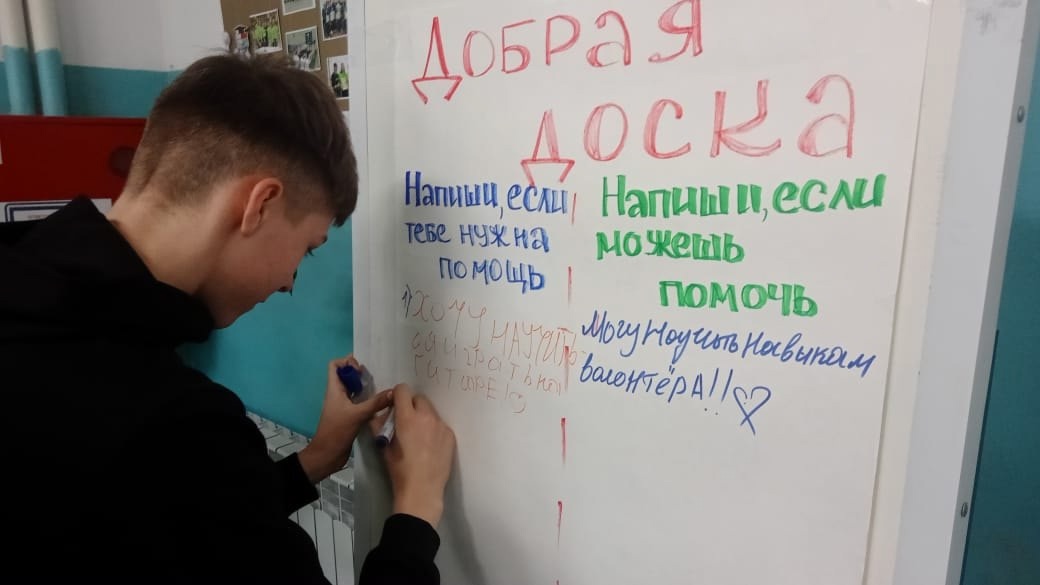 ДОБРАЯ
ДОСКА
Напиши, если
тебе нужна
помощь
1) ХОЧУ НАУЧИТЬ-
СЯ ИГРАТЬ НА
ГИТАРЕ! ♡
Напиши, если
можешь
помочь
Могу научить навыкам
волонтёра!! ♡